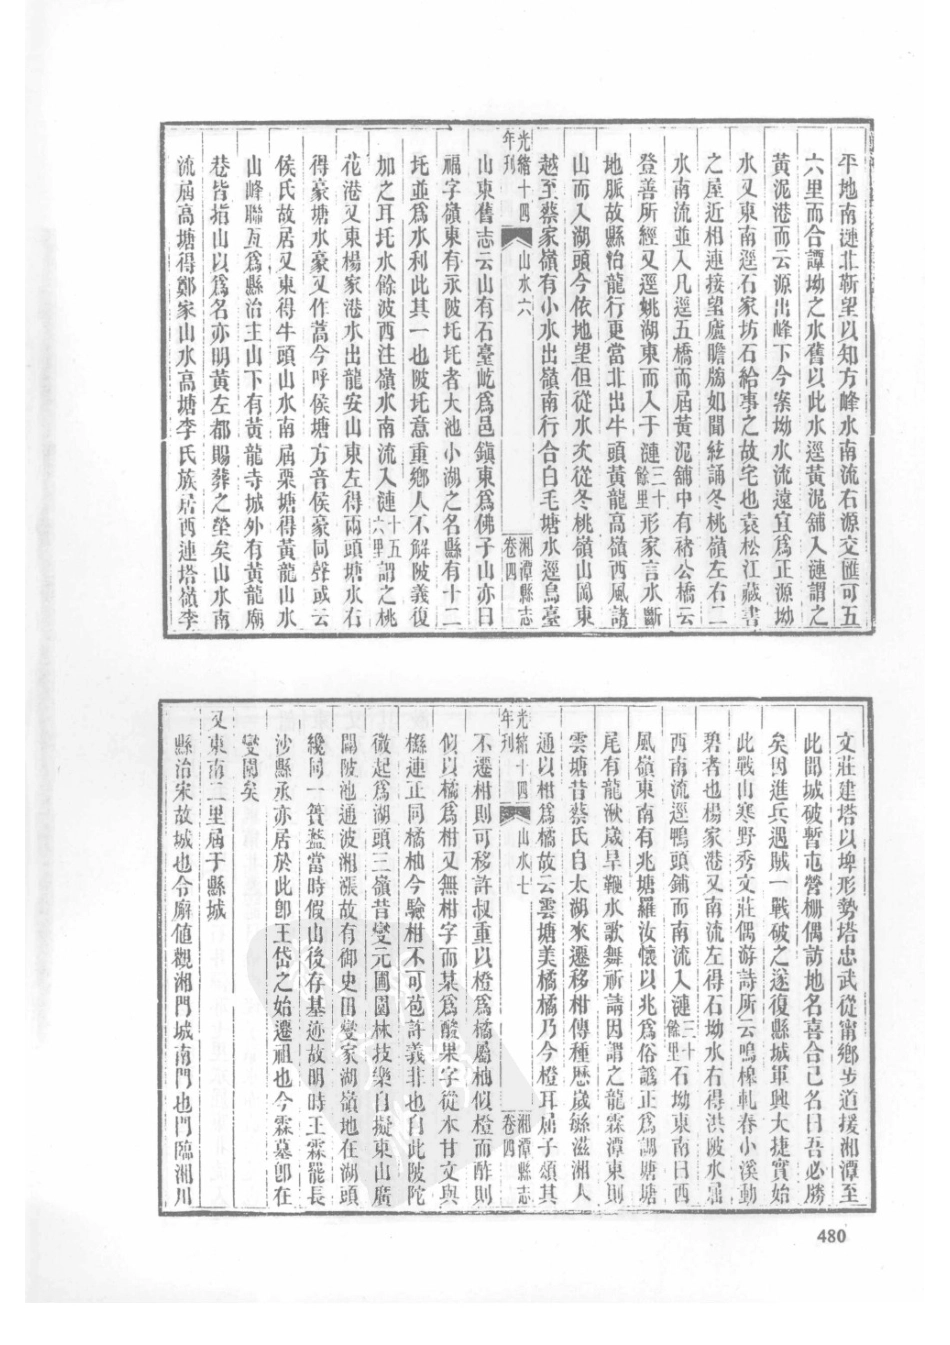 平地南漣北靳望以知方峰水南流右源交匯可五
六里而合譚坳之水舊以此水逕黃泥舖入漣謂之
黃泥港而云源出峰下今案坳水流遠宜爲正源坳
水又東南逕石家坊石給事之故宅也袁松江藏書
之屋近相連接望廬瞻牓如聞絃誦冬桃嶺左右二
水南流並入凡逕五橋而屆黃泥舖中有褚公橋云
登善所經又逕姚湖東而入于漣三十餘里形家言水斷
地脈故縣怡龍行更當北出牛頭黃龍高嶺西風諸
山而入湖頭今依地望但從水次從冬桃嶺山岡東
越至蔡家嶺有小水出嶺南行合白毛塘水逕烏臺
光緒十四年刊 山水六 湘潭縣志卷四
山東舊志云山有石臺屹爲邑鎮東爲佛子山亦曰
福字嶺東有永陂圫圫者大池小湖之名縣有十二
圫並爲水利此其一也陂圫意重鄉人不解陂義復
加之耳圫水餘波西注嶺水南流入漣十五六里謂之桃
花港又東楊家港水出龍安山東左得兩頭塘水右
得豪塘水豪又作蒿今呼侯塘方音侯豪同聲或云
侯氏故居又東得牛頭山水南屆栗塘得黃龍山水
山峰聯亙爲縣治主山下有黃龍寺城外有黃龍廟
巷皆指山以爲名亦明黃左都賜葬之塋矣山水南
流屆高塘得鄭家山水高塘李氏族居西連塔嶺李
文莊建塔以埤形勢塔忠武從甯鄉步道援湘潭至
此聞城破暫屯營柵偶訪地名喜合己名曰吾必勝
矣因進兵遇賊一戰破之遂復縣城軍興大捷實始
此戰山寒野秀文莊偶游詩所云鳴榔軋春小溪動
碧者也楊家港又南流左得石坳水右得洪陂水屆
西南流逕鴨頭舖而南流入漣三十餘里石坳東南曰西
風嶺東南有兆塘羅汝懷以兆爲俗譌正爲𣶏塘塘
尾有龍湫歲旱鞭水歌舞祈請因謂之龍霖潭東則
雲塘昔蔡氏自太湖來遷移柑傳種歷歲緜滋湘人
通以柑爲橘故云雲塘美橘橘乃今橙耳屈子頌其
光緒十四年刊 山水七 湘潭縣志卷四
不遷柑則可移許叔重以橙爲橘屬柚似橙而酢則
似以橘爲柑又無柑字而某爲酸果字從木甘文與
櫾連正同橘柚今驗柑不可苞許義非也自此陂陀
微起爲湖頭三嶺昔燮元圃園林技樂自擬東山廣
開陂池通波湘漲故有御史田燮家湖嶺地在湖頭
纔同一簣葢當時假山後存基迹故明時王霖罷長
沙縣丞亦居於此卽王岱之始遷祖也今霖墓卽在
燮園矣
又東南二里屆于縣城
縣治宋故城也令廨值觀湘門城南門也門臨湘川
480